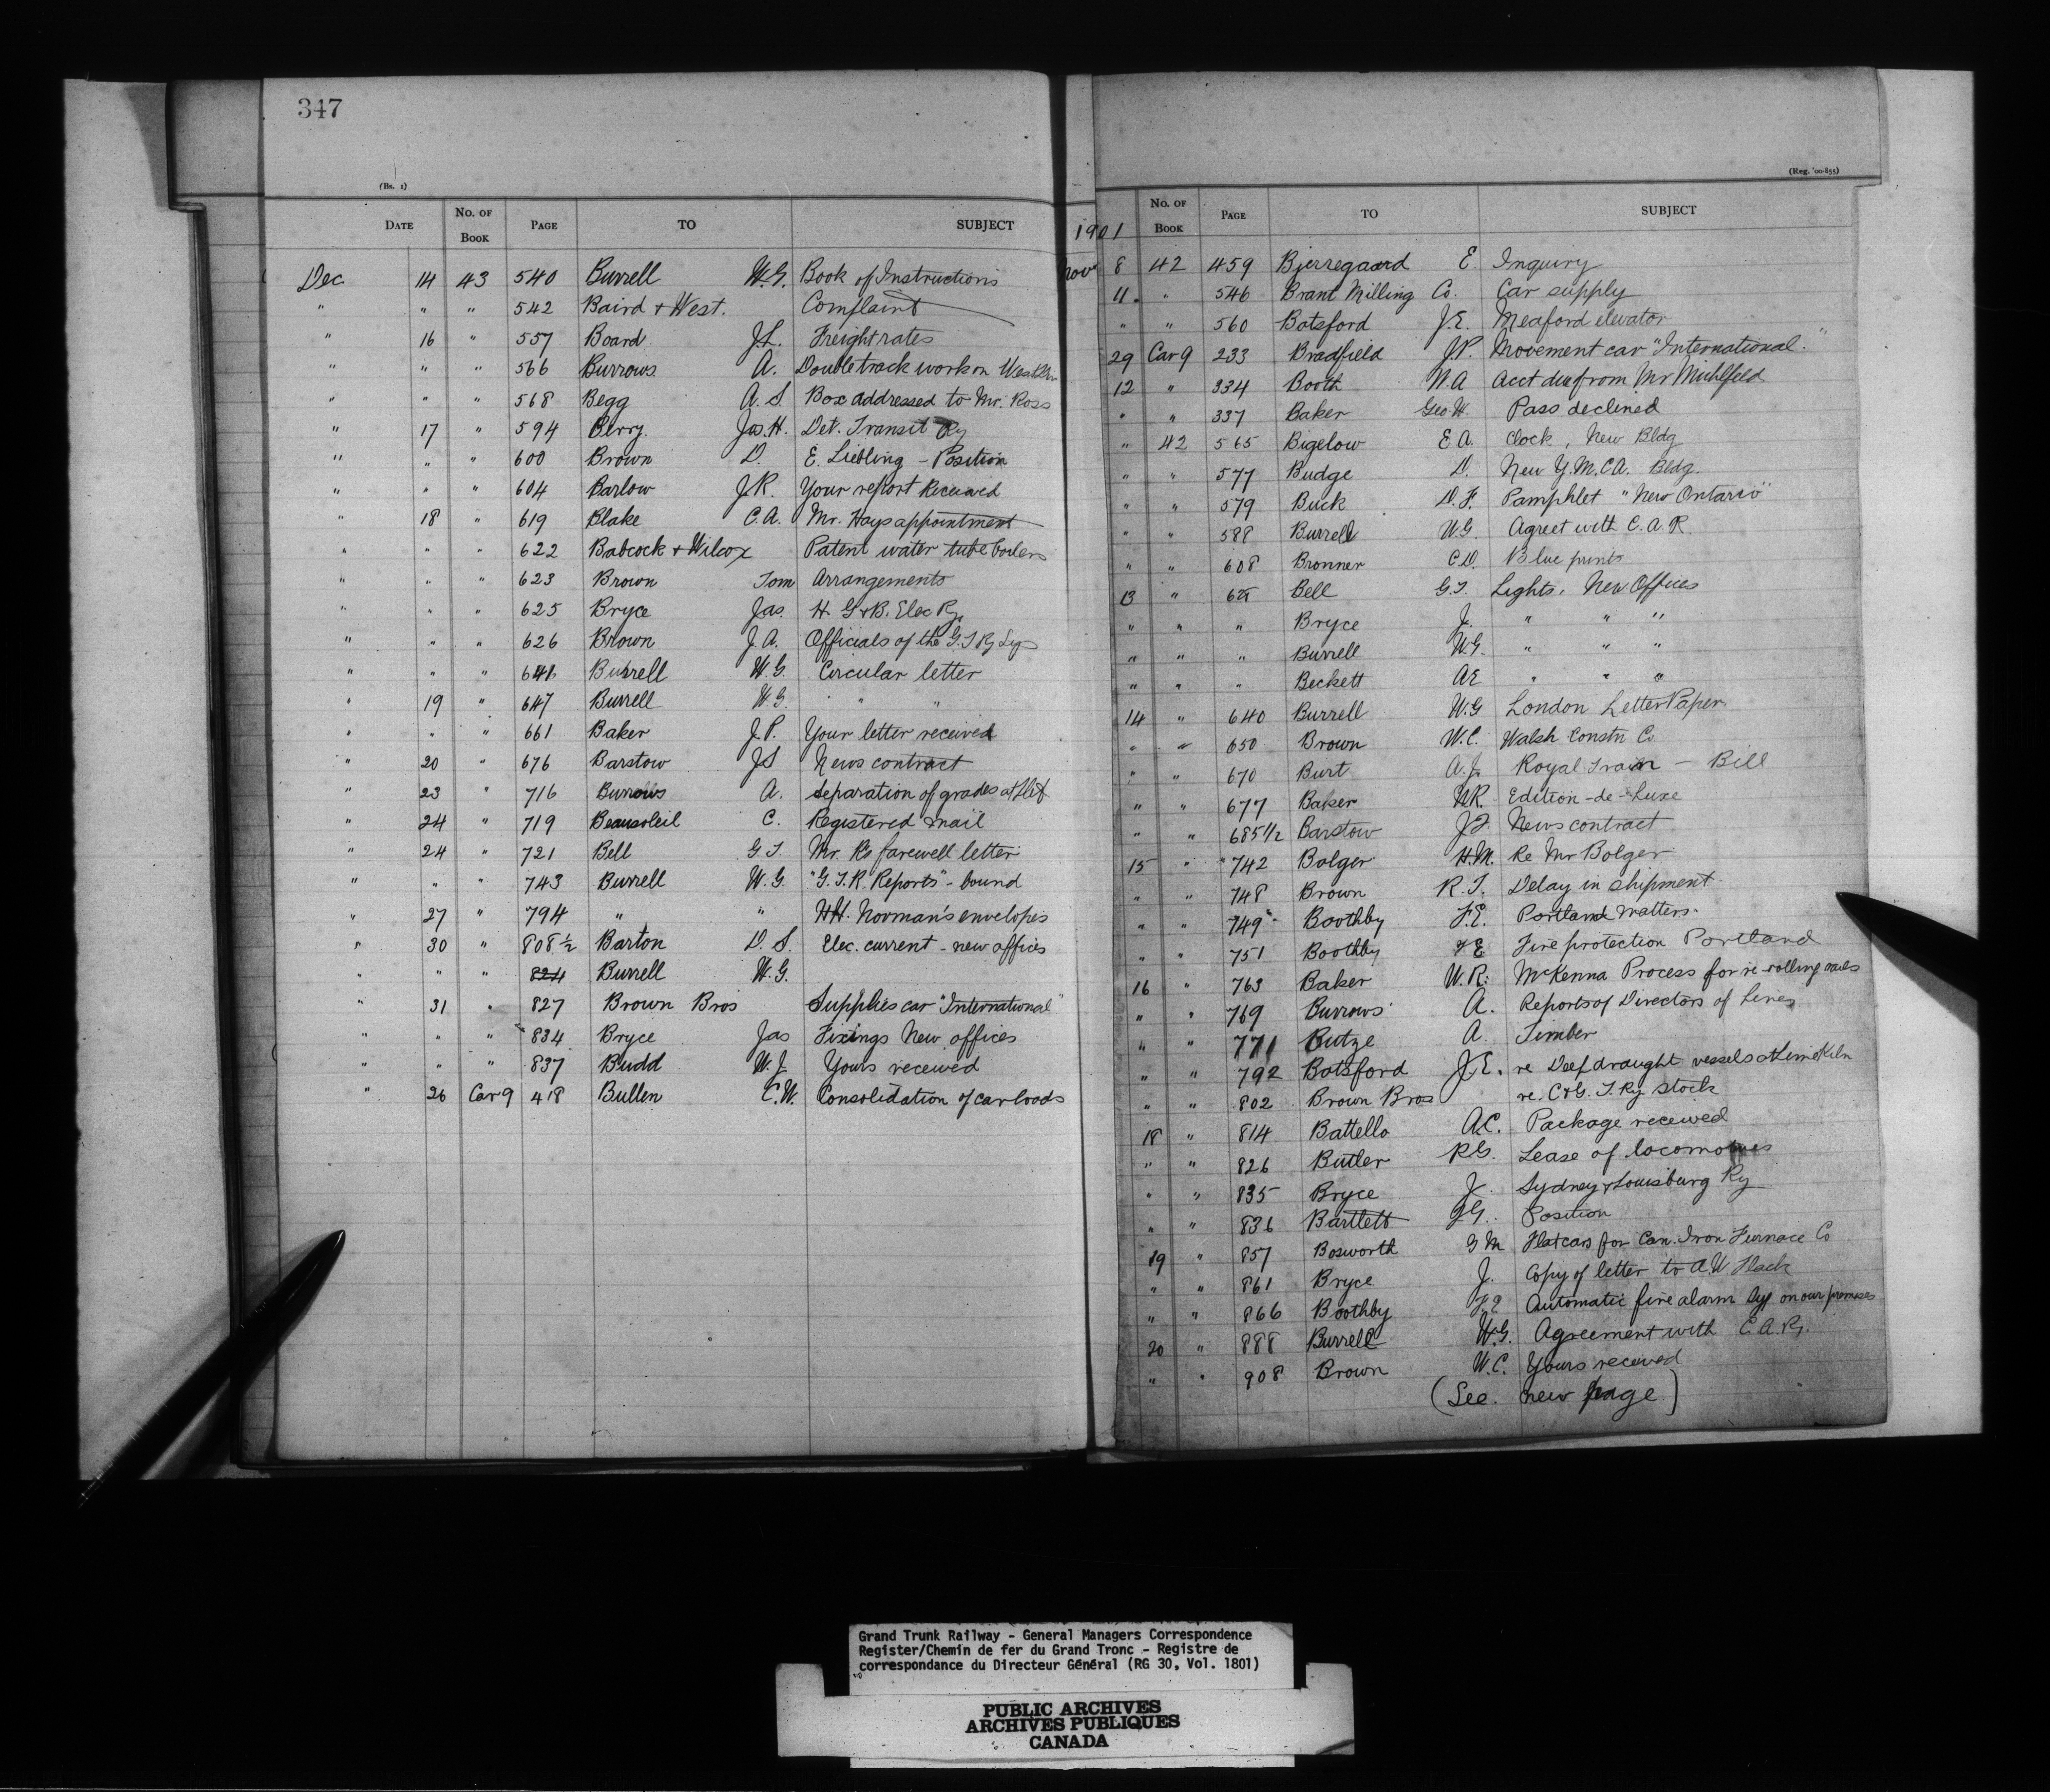 347
(Bs. 1)
DATE No. OF Book PAGE TO SUBJECT
Dec 14 43 540 Burrell W.G. Book of Instructions
" " " 542 Baird + West. Complaint
" 16 " 557 Board J.L. Freight rates
" " " 566 Burrows A. Double track work on
" " " 568 Begg A.S Box addressed to Mr. Ross
" 17 " 594 Berry. Jas. H. Det. Transit Ry
" " " 600 Brown D. E. Liebling - Position
" " " 604 Barlow J.R. Your report Received
" 18 " 619 Blake C.A. Mr. Hays appointment
" " " 622 Babcock + Wilcox Patent water tube boilers
" " " 623 Brown Tom Arrangements
" " " 625 Bryce Jas. H. G + B. Elec Ry.
" " " 626 Brown J A. Officials of the G.T Ry Sys
" " " 646 Burrell W.G. Circular letter
" 19 " 647 Burrell W.G. " "
" " " 661 Baker J.P. Your letter received
" 20 " 676 Barstow JS News contract
" 23 " 716 Burrows A. Separation of grades at
" 24 " 719 Beausoleil C. Registered mail
" 24 " 721 Bell G T Mr. Rs farewell letter
" " " 743 Burrell W.G. "G.T.R. Reports" - bound
" 27 " 794 " " HH. Norman's envelopes
" 30 " 808 1/2 Barton D.S. Elec. current - new offices
" " " 824 Burrell W.G.
" 31 " 827 Brown Bros Supplies car "International"
" " " 834 Bryce Jas Fixings New offices
" " " 837 Budd W.J. Yours received
" 26 Car 9 418 Bullen C.W. Consolidation of car loads
(Reg. '00-855)
1901 No. OF Book PAGE TO SUBJECT
Nov 8 42 459 Bjerregaard E. Inquiry
11. " 546 Brant Milling Co. Car supply
" " 560 Botsford J.E. Meaford elevator
29 Car 9 233 Bradfield J.P. Movement car "International."
12 " 334 Booth W.A Acct due from Mr Muhlfeld
" " 337 Baker Geo W. Pass declined
" 42 565 Bigelow E A. Clock, New Bldg
" " 577 Budge D. New Y.M.C.A. Bldg.
" " 579 Buck D.F. Pamphlet "New Ontario"
" " 588 Burrell W.G. Agreet with C.A.R
" " 608 Bronner C.D. Blue prints
13 " 625 Bell G.T. Lights. New Offices
" " " Bryce J. " " "
" " " Burrell W.G. " " "
" " " Beckett AE " " "
14 " 640 Burrell W.G London Letter Paper
" " 650 Brown W.C. Walsh Constn Co
" " 670 Burt A.J. Royal Train - Bill
" " 677 Baker W.R. Edition-de-Luxe
" " 685 1/2 Barstow J.S. News contract
15 " 742 Bolger H.M. Re Mr Bolger
" " 748 Brown R.T. Delay in shipment
" " 749 Boothby F.E. Portland Matters.
" " 751 Boothby F E Fire protection Portland
16 " 763 Baker W.R. McKenna Process for re-rolling rails
" " 769 Burrows A. Reports of Directors of Lines
" " 771 Butze A. Timber
" " 792 Botsford J.E. re Deep draught vessels at Lime Kiln
" " 802 Brown Bros re. C + G. T. Ry. Stock
18 " 814 Battello A.C. Package received
" " 826 Butler R.G. Lease of locomotives
" " 835 Bryce J. Sydney + Louisburg Ry
" " 836 Bartlett Position
19 " 857 Bosworth G M Flat cars for Can. Iron Furnace Co
" " 861 Bryce J. Copy of letter to A W Flack
" " 866 Boothby F.E Automatic fire alarm Sys on our premises
20 " 888 Burrell W.G. Agreement with C.A.Ry.
" " 908 Brown W.C. Yours received
(See new page)
Grand Trunk Railway - General Managers Correspondence
Register/Chemin de fer du Grand Tronc - Registre de
correspondance du Directeur Général (RG 30, Vol. 1801)
PUBLIC ARCHIVES
ARCHIVES PUBLIQUES
CANADA